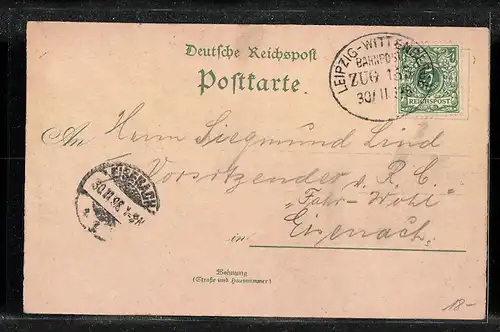 Deutsche Reichspost
Postkarte.
LEIPZIG-WITTENBERGE
BAHNPOST
ZUG
30/11
REICHSPOST
An Herrn Siegmund Lind
Vorsitzender d. R. C.
"Fahr-Wohl"
in Eisenach.
EISENACH
Wohnung
(Straße und Hausnummer)
18-